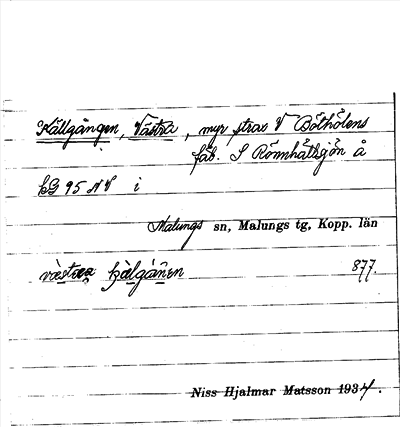 Källgången, Västra, myr strax V Bötholens
fäb. S Rönnhåttsjön å
bG 95 NV i
Malungs sn, Malungs tg, Kopp. län
877.
Niss Hjalmar Matsson 1934.